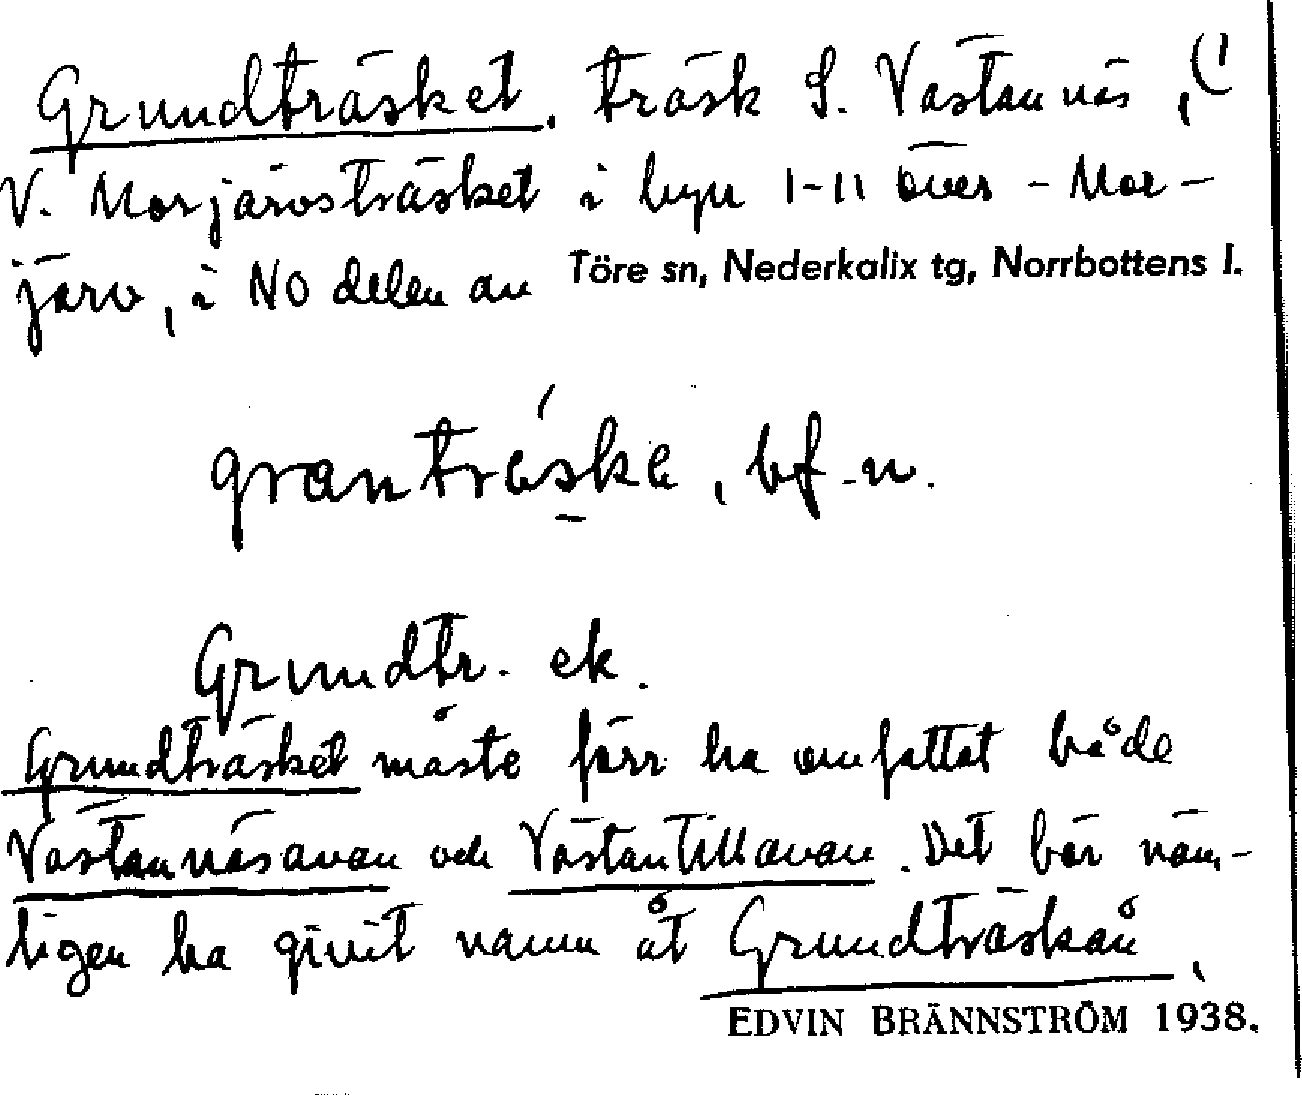 Grundträsket, träsk S. Västannäs, (i
V. Morjärvsträsket i byn 1-11 över - Mor-
järv, i NO delen av Töre sn, Nederkalix tg, Norrbottens l.
granträske, bf. n.
Grundtr. ek.
Grundträsket måste förr ha omfattat både
Västannäsavan och Västantillavan. Det bör näm-
ligen ha givit namn åt Grundträskån,
EDVIN BRÄNNSTRÖM 1938.